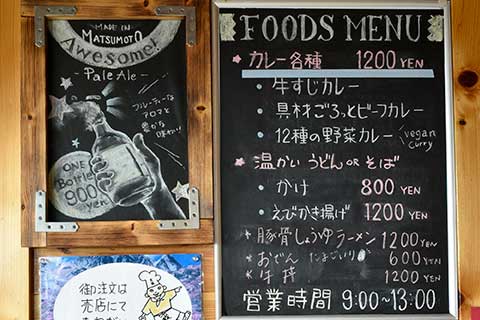 MADE IN
MATSUMOTO
Awesome!
- Pale Ale -
フルーティーな
アロマと
豊かな
味わい!
ONE
Bottle
900
yen
御注文は
売店にて
FOODS MENU
★カレー各種 1200 YEN
・牛すじカレー
・具材ごろっとビーフカレー
・12種の野菜カレー vegan curry
★温かいうどん OR そば
・かけ 800 YEN
・えびかき揚げ 1200 YEN
*豚骨しょうゆラーメン 1200 YEN
*おでん たまごいり 600 YEN
*牛丼 1200 YEN
営業時間 9:00~13:00